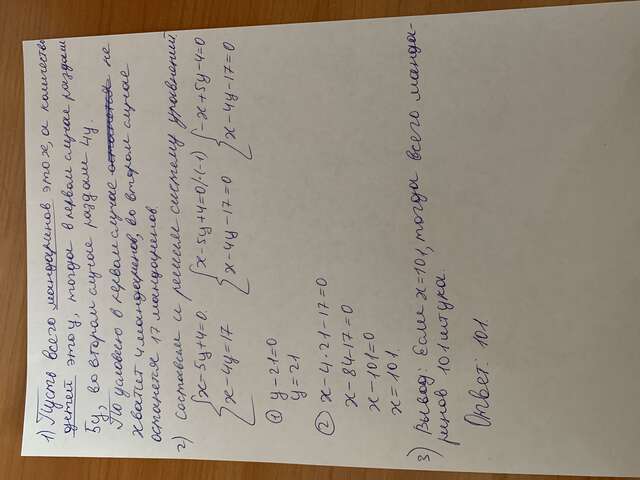 1) Пусть всего мандаринов это x, а количество
детей это y, тогда в первом случае раздали
5y, во втором случае раздали 4y.
По условию в первом случае останется не
хватает 4 мандаринов, во втором случае
останется 17 мандаринов.
2) Составим и решим систему уравнений
{x-5y+4=0 {x-5y+4=0 |·(-1) {-x+5y-4=0
{x-4y=17 {x-4y-17=0 {x-4y-17=0
① y-21=0
y=21
② x-4·21-17=0
x-84-17=0
x-101=0
x=101.
3) Вывод: Если x=101, тогда всего манда-
ринов 101 штука.
Ответ: 101.